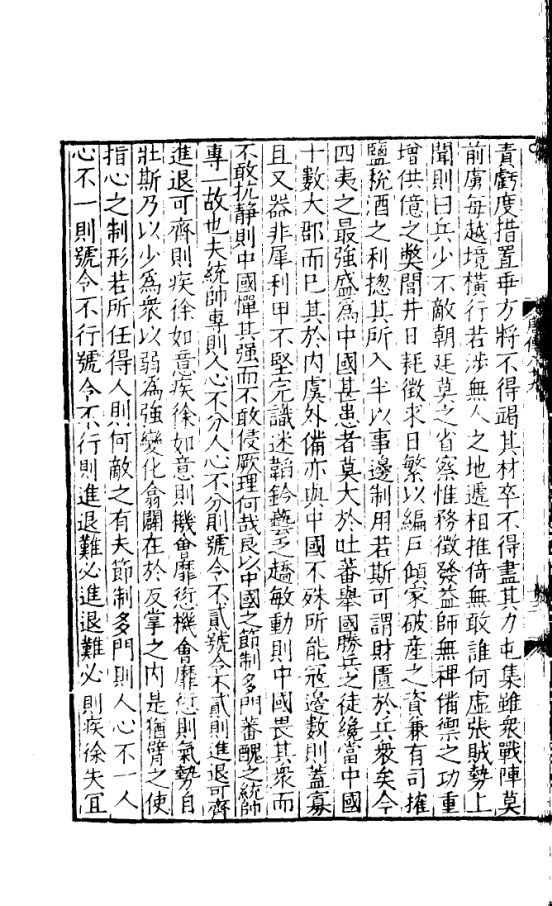 責虧度措置乖方將不得竭其材卒不得盡其力屯集雖衆戰陣莫
前虜每越境橫行若渉無人之地遞相推倚無敢誰何虛張賊勢上
聞則曰兵少不敵朝廷莫之省察惟務徵發益師無裨備禦之功重
增供億之弊閭井日耗徵求日繁以編戶傾家破産之資兼有司搉
鹽稅酒之利摠其所入半以事邊制用若斯可謂財匱於兵衆矣今
四夷之最強盛爲中國甚患者莫大於吐蕃舉國勝兵之徒纔當中國
十數大郡而已其於內虞外備亦與中國不殊所能寇邊數則蓋寡
且又器非犀利甲不堅完識迷韜鈐藝乏趫敏動則中國畏其衆而
不敢抗静則中國憚其強而不敢侵厥理何哉良以中國之節制多門蕃醜之統帥
專一故也夫統帥專則人心不分人心不分則號令不貳號令不貳則進退可齊
進退可齊則疾徐如意疾徐如意則機會靡愆機會靡愆則氣勢自
壯斯乃以少爲衆以弱爲強變化翕闢在於反掌之內是猶臂之使
指心之制形若所任得人則何敵之有夫節制多門則人心不一人
心不一則號令不行號令不行則進退難必進退難必則疾徐失宜